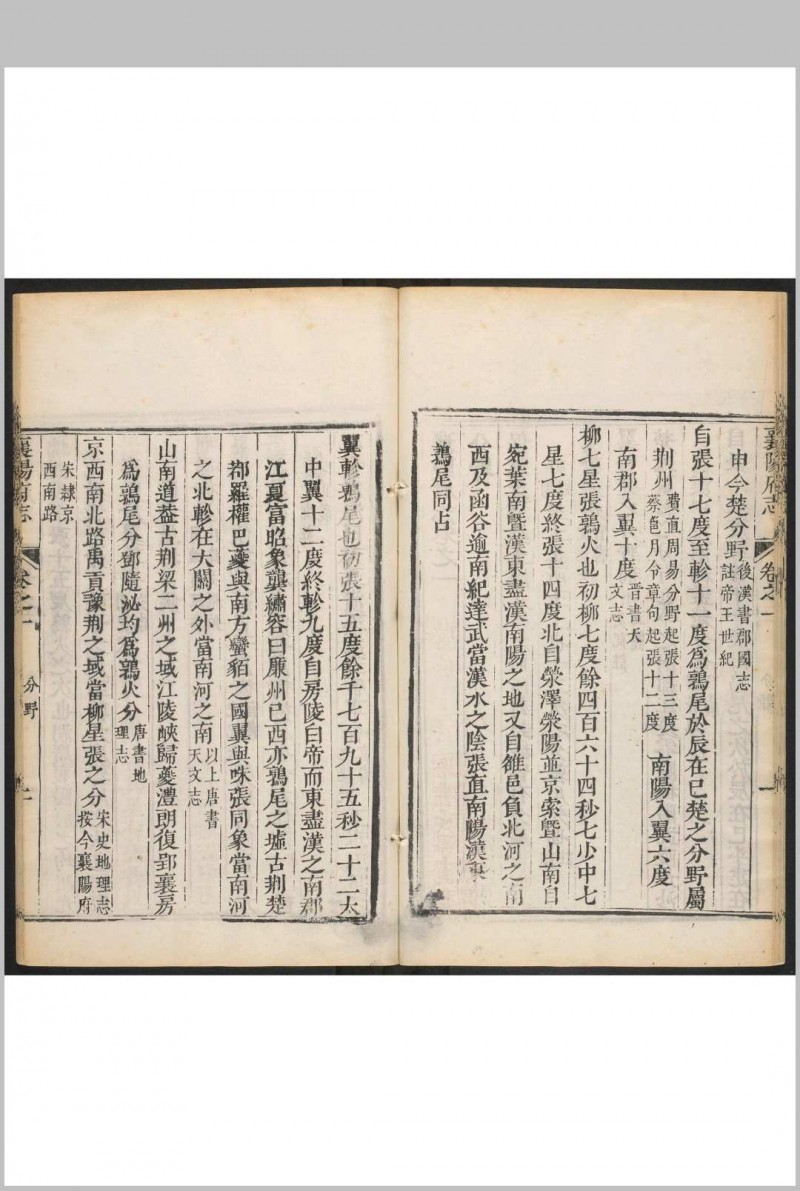 襄陽府志
卷之一
一
申今楚分野後漢書郡國志
註帝王世紀
自張十七度至軫十一度爲鶉尾於辰在巳楚之分野屬
荆州費直周易分野起張十三度
蔡邕月令章句起張十二度
南陽入翼六度
南郡入翼十度晉書天
文志
柳七星張鶉火也初柳七度餘四百六十四秒七少中七
星七度終張十四度北自滎澤滎陽並京索暨山南自
宛葉南暨漢東盡漢南陽之地又自雒邑負北河之南
西及函谷逾南紀達武當漢水之陰張直南陽漢東
鶉尾同占
翼軫鶉尾也初張十五度餘千七百九十五秒二十二太
中翼十二度終軫九度自房陵白帝而東盡漢之南郡
江夏富昭象龔繡容白廉州已西亦鶉尾之墟古荆楚
鄀羅權巴夔與南方蠻貊之國翼與咮張同象當南河
之北軫在大關之外當南河之南以上唐書
天文志
山南道葢古荆梁二州之域江陵峽歸夔澧朗復郢襄房
爲鶉尾分鄧隨泌均爲鶉火分唐書地
理志
京西南北路禹貢豫荆之域當柳星張之分宋史地理志
按今襄陽府
宋隸京
西南路
襄陽府志
卷之一
分野
二